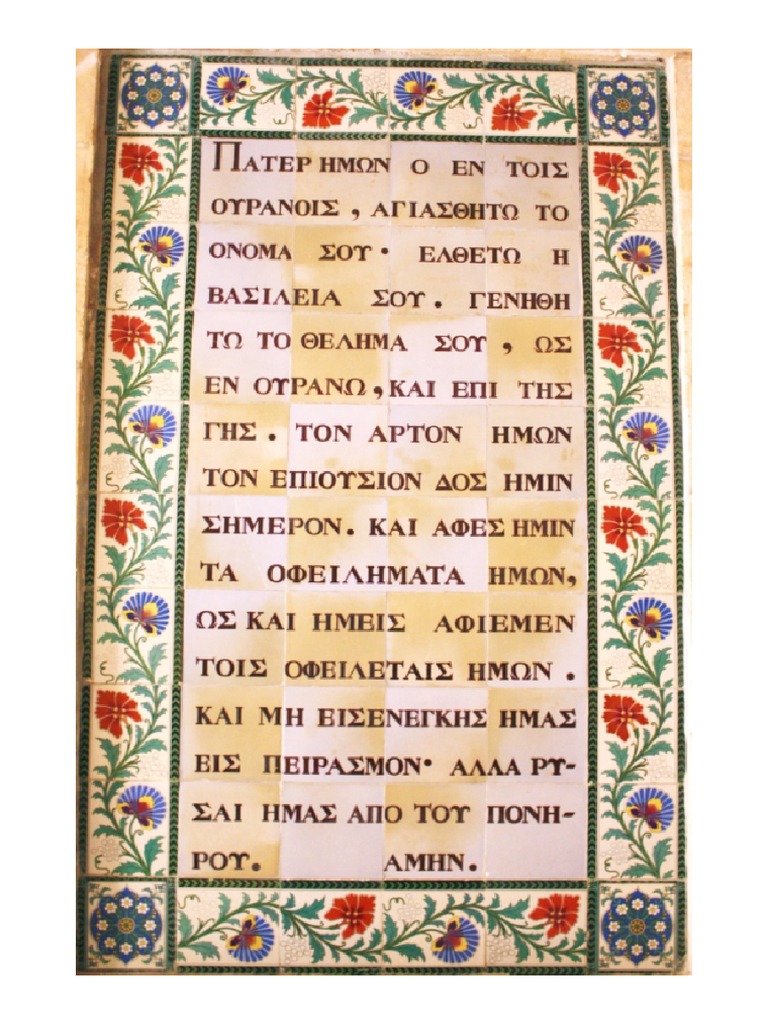 ΠΑΤΕΡ ΗΜΩΝ Ο ΕΝ ΤΟΙΣ
ΟΥΡΑΝΟΙΣ , ΑΓΙΑΣΘΗΤΩ ΤΟ
ΟΝΟΜΑ ΣΟΥ· ΕΛΘΕΤΩ Η
ΒΑΣΙΛΕΙΑ ΣΟΥ. ΓΕΝΗΘΗ
ΤΩ ΤΟ ΘΕΛΗΜΑ ΣΟΥ , ΩΣ
ΕΝ ΟΥΡΑΝΩ, ΚΑΙ ΕΠΙ ΤΗΣ
ΓΗΣ. ΤΟΝ ΑΡΤΟΝ ΗΜΩΝ
ΤΟΝ ΕΠΙΟΥΣΙΟΝ ΔΟΣ ΗΜΙΝ
ΣΗΜΕΡΟΝ. ΚΑΙ ΑΦΕΣ ΗΜΙΝ
ΤΑ ΟΦΕΙΛΗΜΑΤΑ ΗΜΩΝ,
ΩΣ ΚΑΙ ΗΜΕΙΣ ΑΦΙΕΜΕΝ
ΤΟΙΣ ΟΦΕΙΛΕΤΑΙΣ ΗΜΩΝ.
ΚΑΙ ΜΗ ΕΙΣΕΝΕΓΚΗΣ ΗΜΑΣ
ΕΙΣ ΠΕΙΡΑΣΜΟΝ· ΑΛΛΑ ΡΥ-
ΣΑΙ ΗΜΑΣ ΑΠΟ ΤΟΥ ΠΟΝΗ-
ΡΟΥ. ΑΜΗΝ.